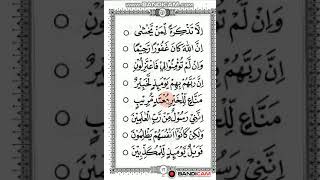 WWW.BANDICAM.COM
اِلَّا تَذْكِرَةً لِّمَنْ يَّخْشٰى
اِنَّ اللّٰهَ كَانَ غَفُوْرًا رَّحِيْمًا
وَاِنْ لَّمْ تُؤْمِنُوْا لِيْ فَاعْتَزِلُوْنِ
اِنَّ رَبَّهُمْ بِهِمْ يَوْمَئِذٍ لَّخَبِيْرٌ
مَنَّاعٍ لِّلْخَيْرِ مُعْتَدٍ مُّرِيْبٍ
اِنِّيْ رَسُوْلٌ مِّنْ رَّبِّ الْعٰلَمِيْنَ
وَلٰكِنْ كَانُوْا اَنْفُسَهُمْ يَظْلِمُوْنَ
فَوَيْلٌ يَّوْمَئِذٍ لِّلْمُكَذِّبِيْنَ
BANDICAM